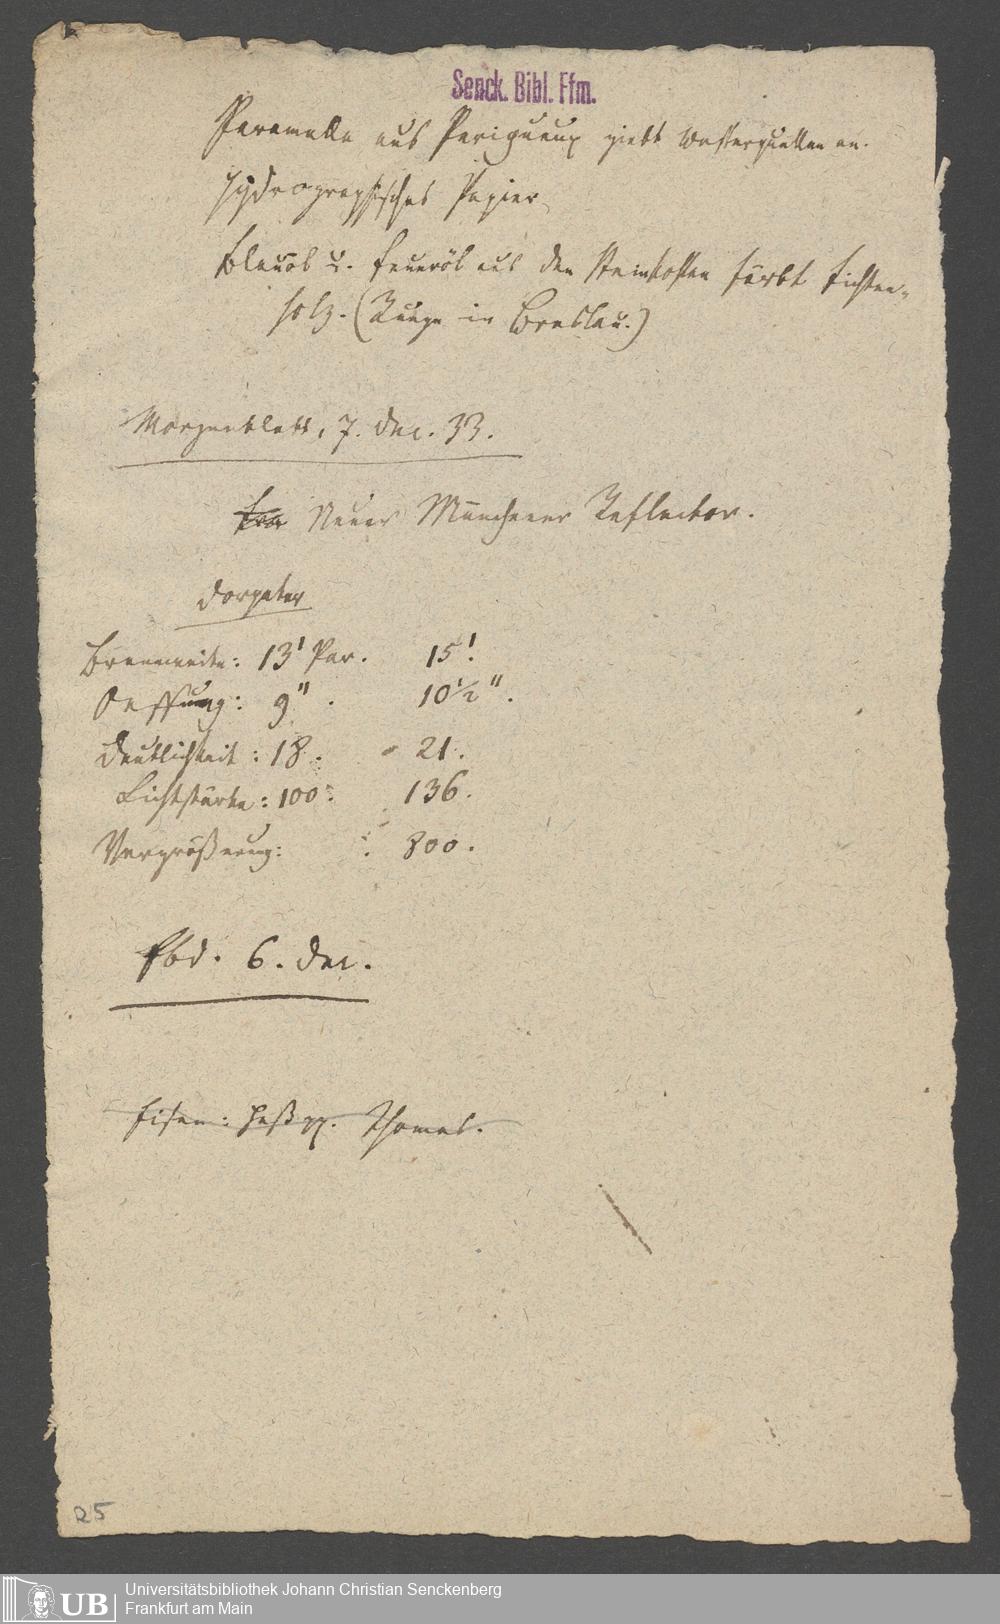 Senck. Bibl. Ffm.
Paramelle aus Perigueux giebt Wasserquellen an.
Hydrographisches Papier
Blauöl u. Feueröl aus den Steinkohlen färbt Fichten-
holz. (Runge in Breslau.)
Morgenblatt, 7. Dec. 33.
Neuer Münchener Reflector.
Dorpater
Brennweite: 13' Par. 15'.
Oeffnung: 9". 10½".
Deutlichkeit: 18. 21.
Lichtstärke: 100. 136.
Vergrößerung: 800.
Ebd. 6. Dec.
Eisen: Heß pp. Thomas.
25
UB
Universitätsbibliothek Johann Christian Senckenberg
Frankfurt am Main